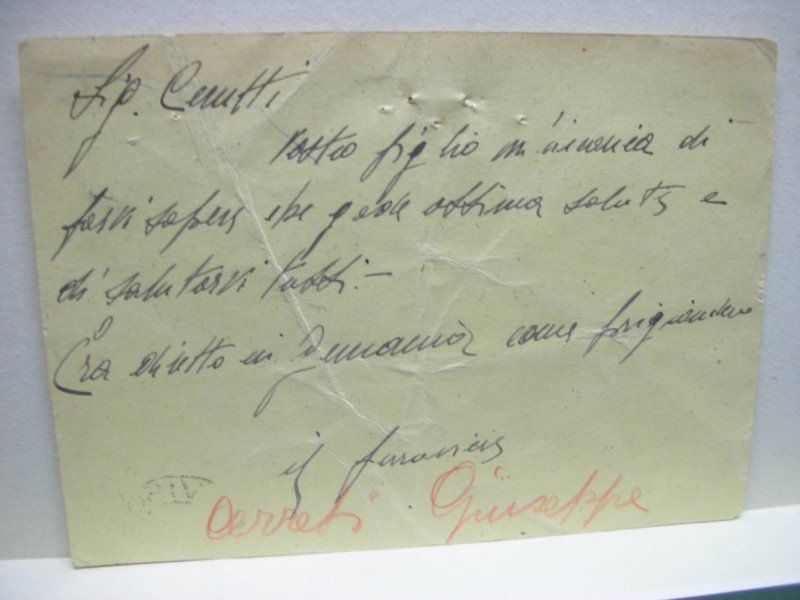 Sig. Cerutti
Vostro figlio m'incarica di
farvi sapere che gode ottima salute e
di salutarvi tutti.—
Era diretto in Germania come prigioniero
il ferroviere
Cerreti Giuseppe